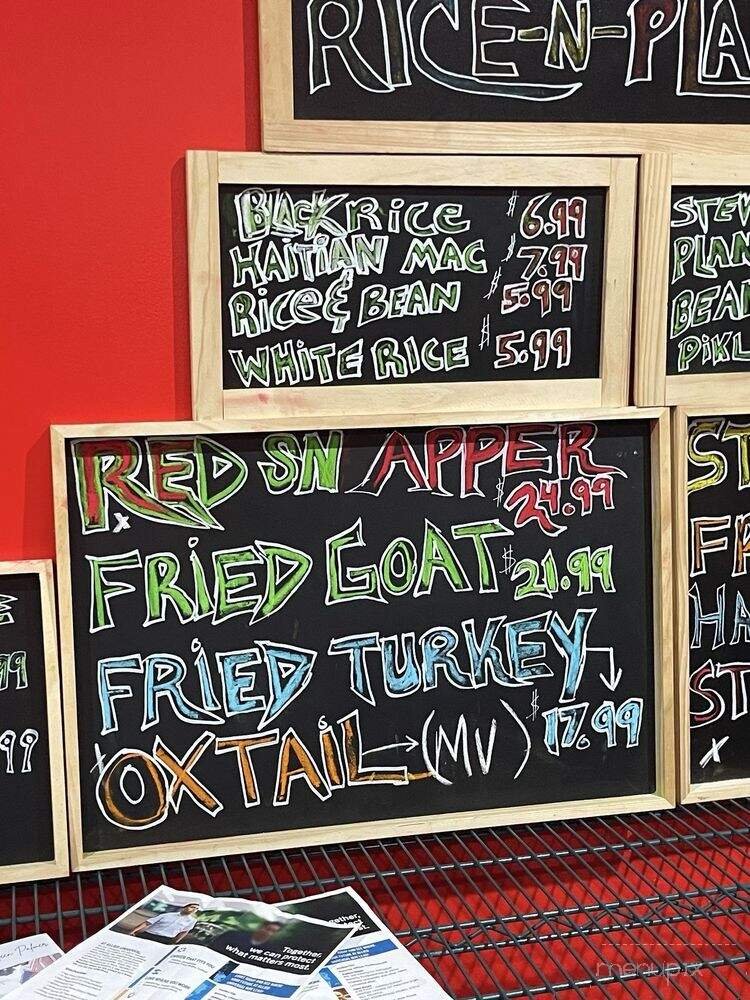 RICE-N-PLA
BLACK RICE $6.99
HAITIAN MAC $7.99
RICE & BEAN $5.99
WHITE RICE $5.99
STEW
PLAN
BEAN
PIKL
RED SNAPPER $24.99
x
FRIED GOAT $21.99
FRIED TURKEY $17.99
x OXTAIL → (MV)
ST
FR
HA
ST
x
99
Together,
we can protect
what matters most.
menupix